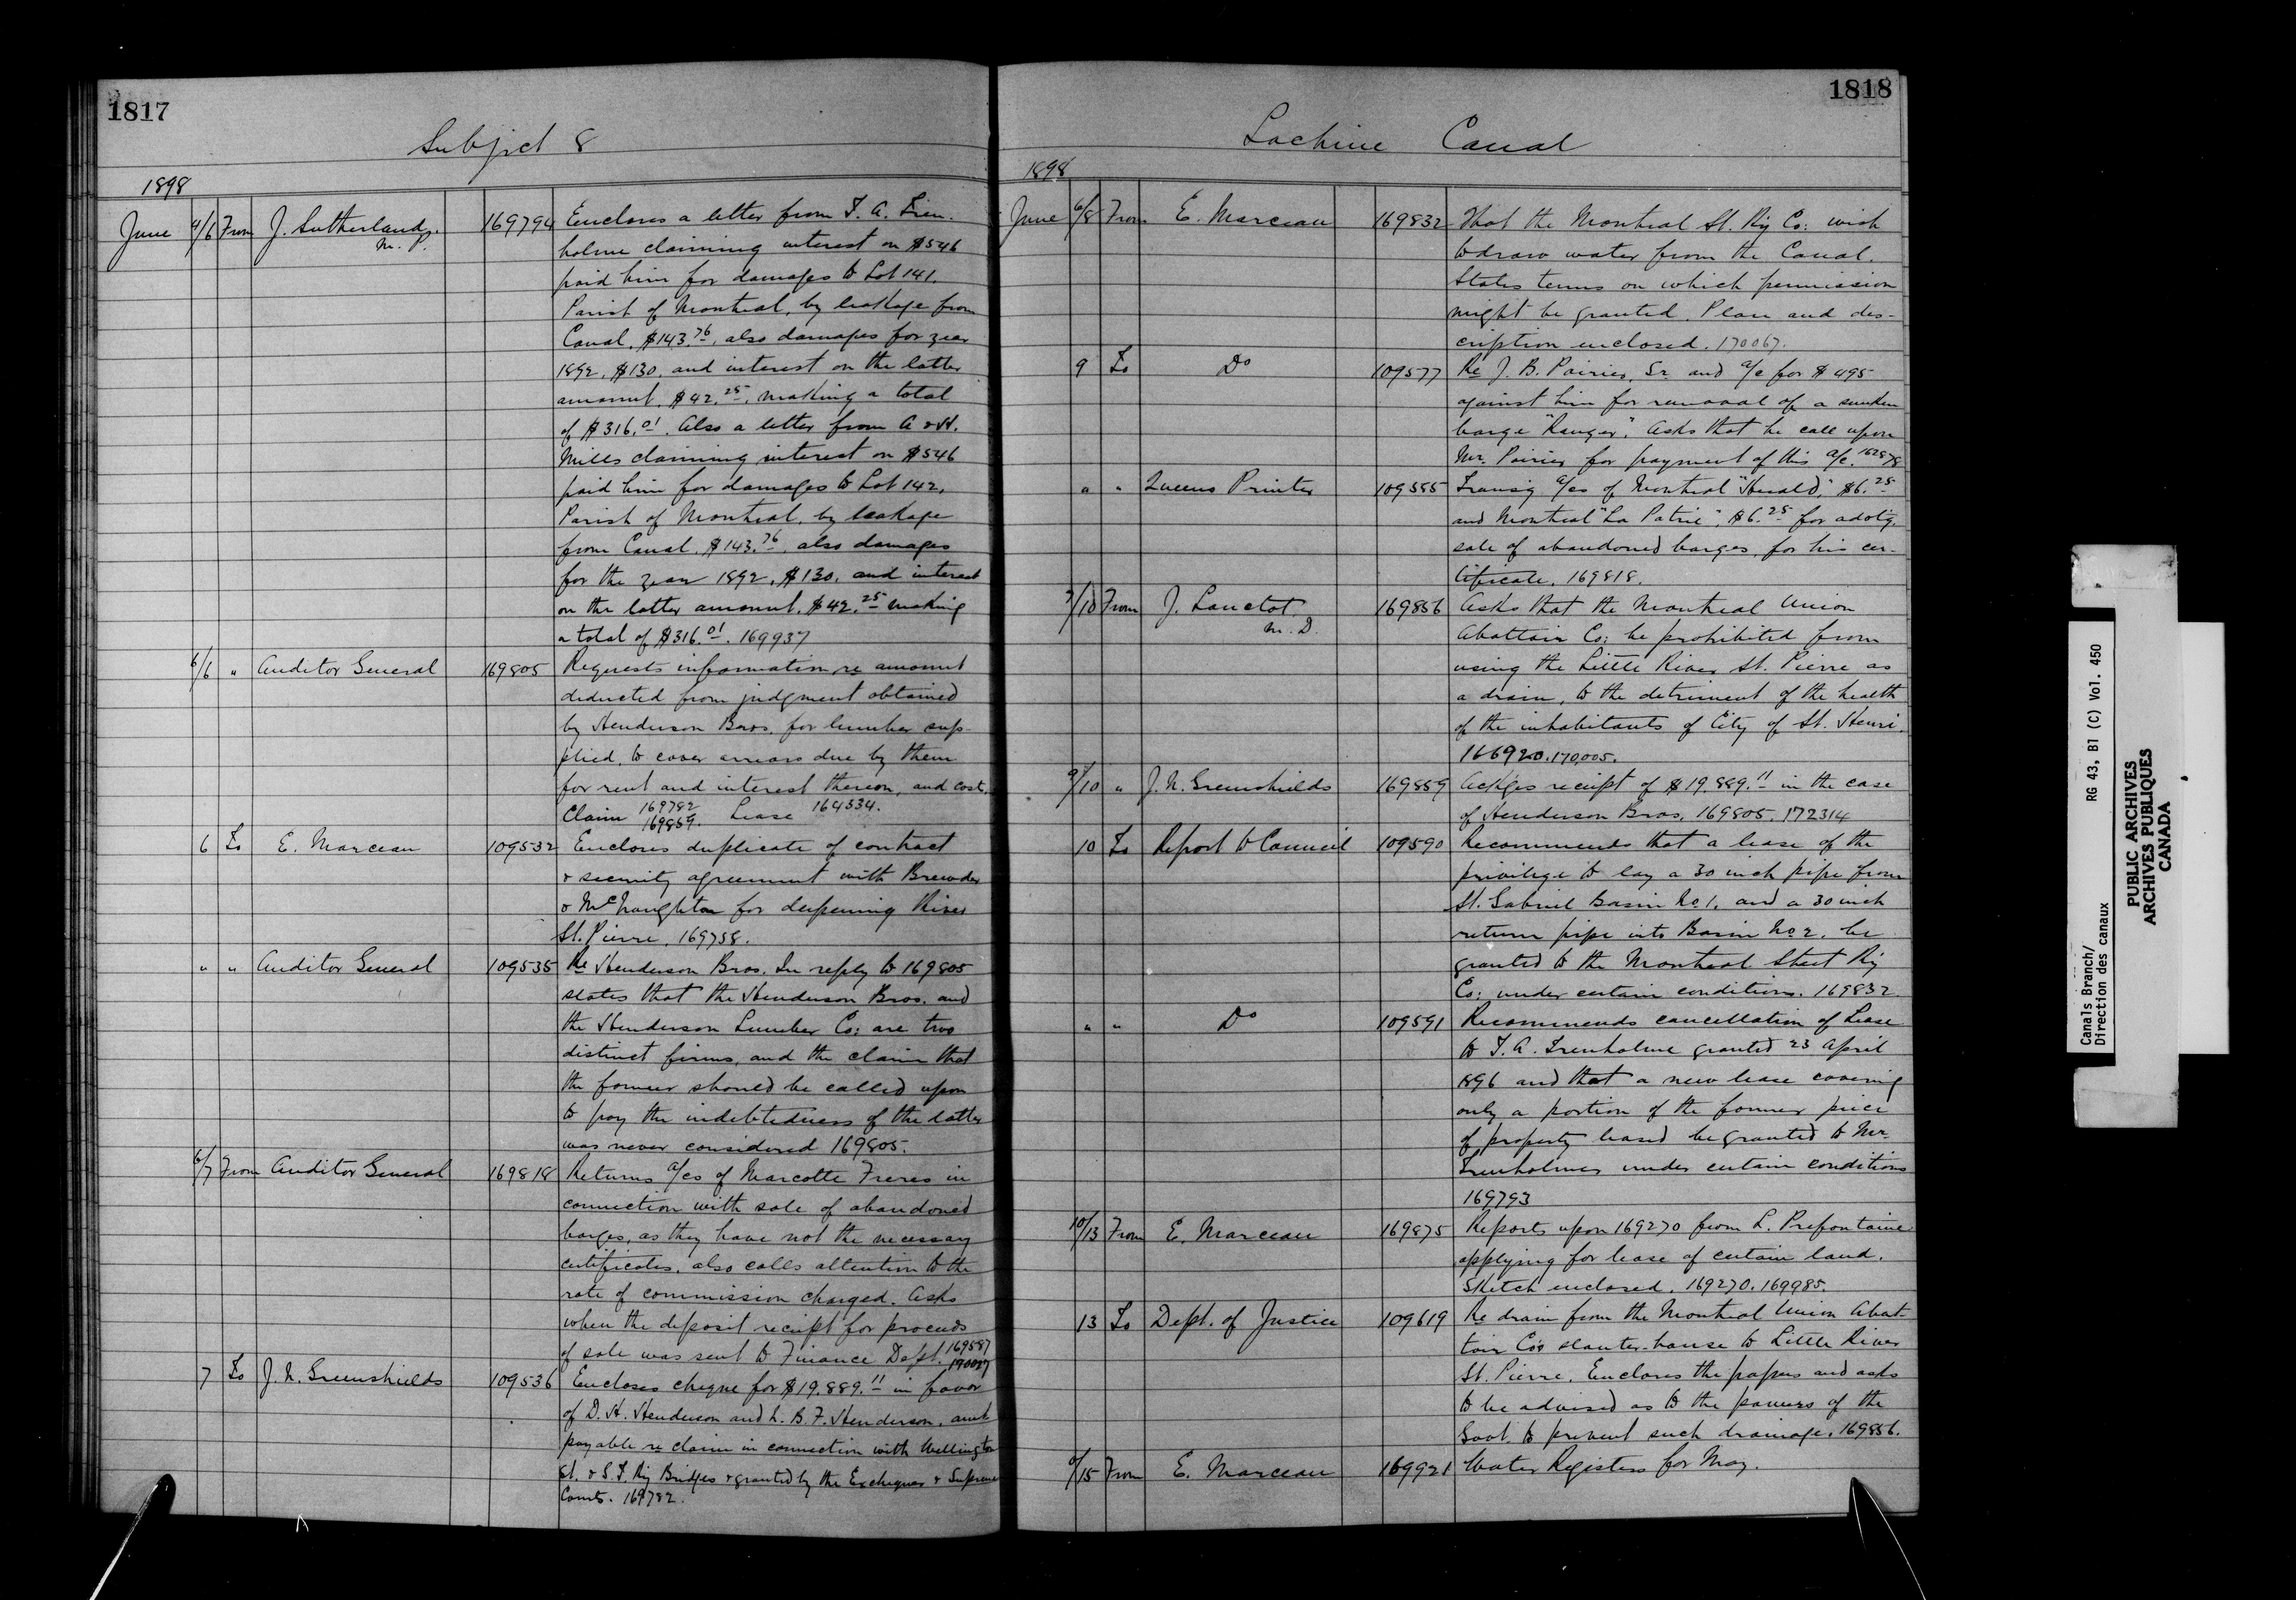 1817
Subject 8
1898
June 4/6 From J. Sutherland, 169794 Encloses a letter from T. A. Tren-
M. P. holme claiming interest on $546
paid him for damages to Lot 141.
Parish of Montreal, by leakage from
Canal, $143.76, also damages for year
1892, $130, and interest on the latter
amount, $42.25, making a total
of $316.01. Also a letter from A & H.
Mills claiming interest on $546
paid him for damages to Lot 142,
Parish of Montreal, by leakage
from Canal, $143.76, also damages
for the year 1892, $130, and interest
on the latter amount, $42.25 making
a total of $316.01. 169937
6/6 " Auditor General 169805 Requests information re amount
deducted from judgment obtained
by Henderson Bros. for lumber sup-
plied, to cover arrears due by them
for rent and interest thereon, and cost.
Claim 169782 Lease 164534.
169859.
6 To E. Marceau 109532 Encloses duplicate of contract
& security agreement with Brewder
& McNaughton for deepening River
St. Pierre. 169758.
" " Auditor General 109535 Re Henderson Bros. In reply to 169805
states that the Henderson Bros. and
the Henderson Lumber Co: are two
distinct firms, and the claim that
the former should be called upon
to pay the indebtedness of the latter
was never considered 169805.
6/7 From Auditor General 169818 Returns a/cs of Marcotte Freres in
connection with sale of abandoned
barges, as they have not the necessary
certificates, also calls attention to the
rate of commission charged. Asks
when the deposit receipt for proceeds
of sale was sent to Finance Dept. 169587
170027
7 To J. N. Greenshields 109536 Encloses cheque for $19,889.11 in favor
of D. H. Henderson and N. B. F. Henderson, amt
payable re claim in connection with Wellington
St. & G. T. Ry Bridges & granted by the Exchequer & Supreme
Courts. 169782.
1818
Lachine Canal
1898
June 6/8 From E. Marceau 169832 That the Montreal St. Ry Co: wish
to draw water from the Canal.
States terms on which permission
might be granted. Plan and des-
cription enclosed. 170067.
9 To Do 109577 Re J. B. Poirier, Sr. and a/c for $495
against him for removal of a sunken
barge "Ranger". Asks that he call upon
Mr. Poirier for payment of this a/c. 162878
" " Queens Printer 109585 Transg a/cs of Montreal "Herald," $6.25
and Montreal "La Patrie", $6.25 for advtg.
sale of abandoned barges, for his cer-
tificate. 169818.
7/10 From J. Lanctot 169856 Asks that the Montreal Union
M. D. Abattoir Co: be prohibited from
using the Little River St. Pierre as
a drain, to the detriment of the health
of the inhabitants of City of St. Henri.
166920. 170,005.
9/10 " J. N. Greenshields 169859 Ackges receipt of $19.889.11 in the case
of Henderson Bros. 169805. 172314
10 To Report to Council 109590 Recommends that a lease of the
privilege to lay a 30 inch pipe from
St. Gabriel Basin No 1, and a 30 inch
return pipe into Basin No 2, be
granted to the Montreal Street Ry
Co: under certain conditions. 169832.
" " Do 109591 Recommends cancellation of Lease
to T. A. Trenholme granted 23 April
1896 and that a new lease covering
only a portion of the former piece
of property leased be granted to Mr.
Trenholme under certain conditions
169793
10/13 From E. Marceau 169875 Reports upon 169270 from L. Prefontaine
applying for lease of certain land.
Sketch enclosed. 169270. 169985.
13 To Dept. of Justice 109619 Re drain from the Montreal Union Abat-
toir Co's slauter-house to Little River
St. Pierre. Encloses the papers and asks
to be advised as to the powers of the
Govt. to prevent such drainage. 169856.
/15 From E. Marceau 169921 Water Registers for May.
Canals Branch/ RG 43, B1 (C) Vol. 450
Direction des canaux
PUBLIC ARCHIVES
ARCHIVES PUBLIQUES
CANADA